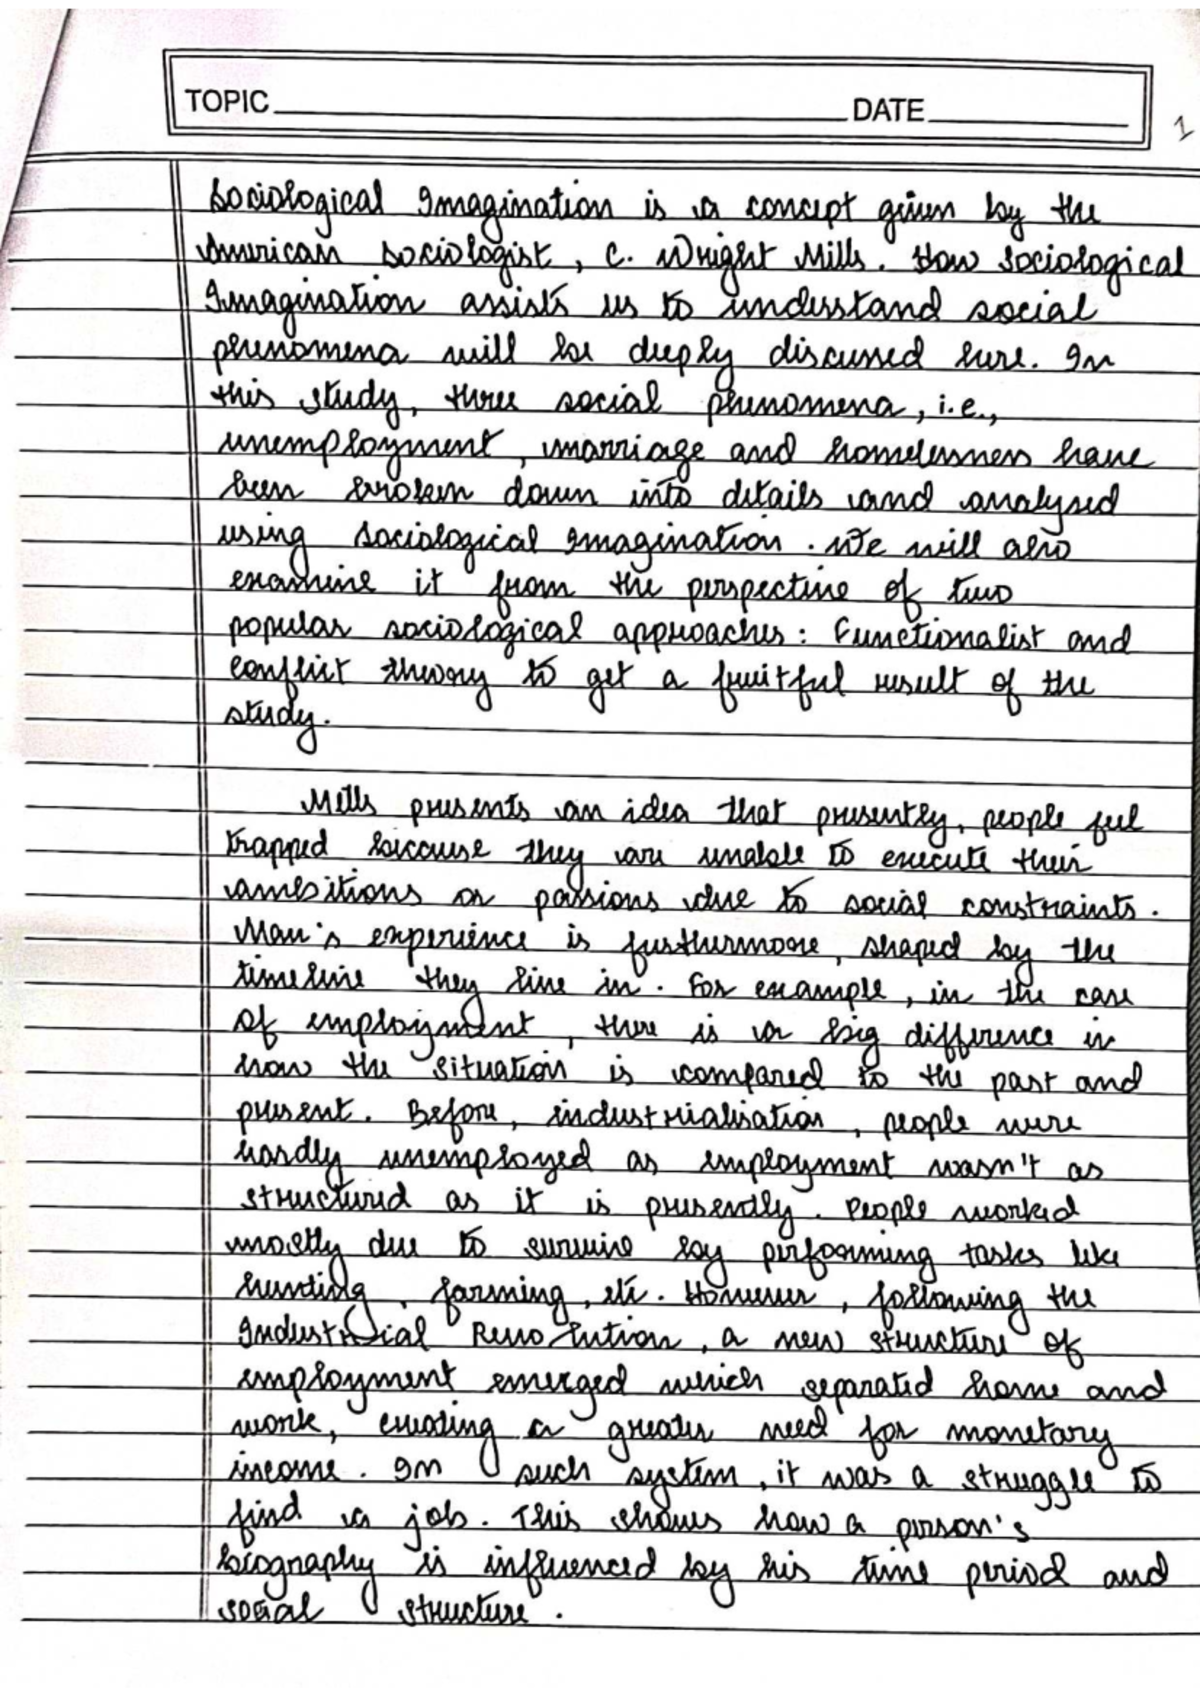 TOPIC DATE
1
Sociological Imagination is a concept given by the
American sociologist, C. Wright Mills. How Sociological
Imagination assists us to understand social
phenomena will be deeply discussed here. In
this study, three social phenomena, i.e.,
unemployment, marriage and homelessness have
been broken down into details and analysed
using Sociological Imagination. We will also
examine it from the perspective of two
popular sociological approaches: Functionalist and
conflict theory to get a fruitful result of the
study.
Mills presents an idea that presently, people feel
trapped because they are unable to execute their
ambitions or passions due to social constraints.
Man's experience is furthermore, shaped by the
timeline they live in. For example, in the case
of employment, there is a big difference in
how the situation is compared to the past and
present. Before, industrialisation, people were
hardly unemployed as employment wasn't as
structured as it is presently. People worked
mostly due to survive by performing tasks like
hunting, farming, etc. However, following the
Industrial Revolution, a new structure of
employment emerged which separated home and
work, creating a greater need for monetary
income. In such system, it was a struggle to
find a job. This shows how a person's
biography is influenced by his time period and
social structure.